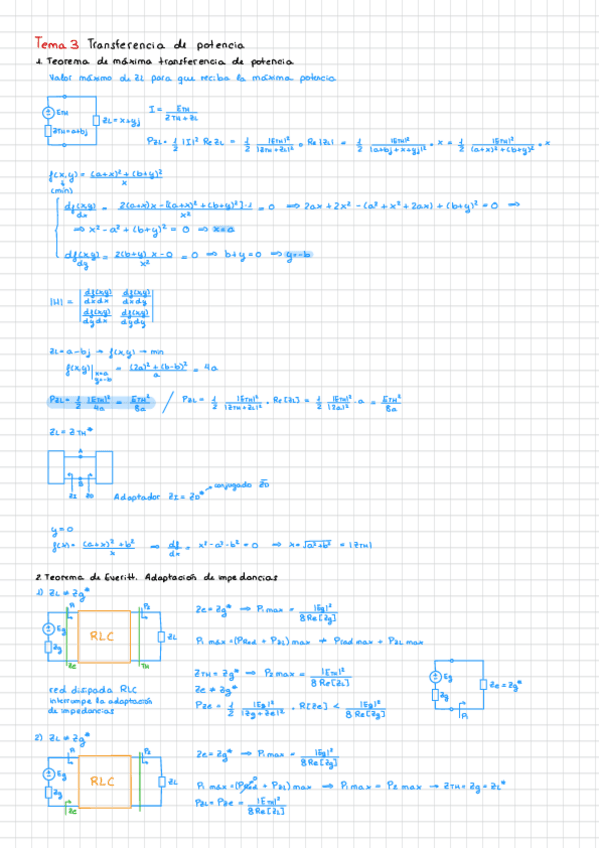 Tema 3 Transferencia de potencia
1. Teorema de máxima transferencia de potencia
Valor máximo de ZL para que reciba la máxima potencia
ETH
ZTH=a+bj
ZL=x+yj
I = ETH / (ZTH+ZL)
PZL = 1/2 |I|² Re ZL = 1/2 |ETH|² / |ZTH+ZL|² · Re|ZL| = 1/2 |ETH|² / |a+bj+x+yj|² · x = 1/2 |ETH|² / ((a+x)²+(b+y)²) · x
f(x,y) = ((a+x)²+(b+y)²) / x
(min)
df(x,y)/dx = (2(a+x)x-[(a+x)²+(b+y)²]·1) / x² = 0 ⇒ 2ax+2x²-(a²+x²+2ax)+(b+y)²=0 ⇒
⇒ x²-a²+(b+y)²=0 ⇒ x=a
df(x,y)/dy = (2(b+y)x-0) / x² = 0 ⇒ b+y=0 ⇒ y=-b
|H| = | df(x,y)/dxdx df(x,y)/dxdy |
| df(x,y)/dydx df(x,y)/dydy |
ZL=a-bj → f(x,y) → min
f(x,y)| x=a y=-b = ((2a)²+(b-b)²) / a = 4a
PZL = 1/2 |ETH|² / 4a = ETH² / 8a / PZL = 1/2 |ETH|² / |ZTH+ZL|² · Re[ZL] = 1/2 |ETH|² / |2a|² · a = ETH² / 8a
ZL=ZTH*
A
B
ZI ZO
Adaptador ZI=ZO* → conjugado
y=0
f(x)= ((a+x)²+b²) / x ⇒ df/dx = x²-a²-b²=0 ⇒ x=√(a²+b²) = |ZTH|
2. Teorema de Everitt. Adaptación de impedancias
1) ZL ≠ Zg*
Eg
Zg
P1
RLC
P2
ZL
Ze
TH
Ze=Zg* ⇒ P1 max = |Eg|² / 8Re[Zg]
P1 max=(PRed + PZL) max ≠ Pred max + PZL max
ZTH=Zg* ⇒ P2 max = |ETH|² / 8Re[ZL]
Ze≠Zg*
PZe = 1/2 |Eg|² / |Zg+Ze|² · R[Ze] < |Eg|² / 8Re[Zg]
Eg
Zg
Ze=Zg*
P1
red disipada RLC
interrumpe la adaptación
de impedancias
2) ZL ≠ Zg*
Eg
Zg
P1
RLC
P2
ZL
Ze
Ze=Zg* ⇒ P1 max = |Eg|² / 8Re[Zg]
P1 máx=(PRed + PZL) máx ⇒ P1 max = P2 max → ZTH=Zg=ZL*
PZL=PZe = |ETH|² / 8Re[ZL]